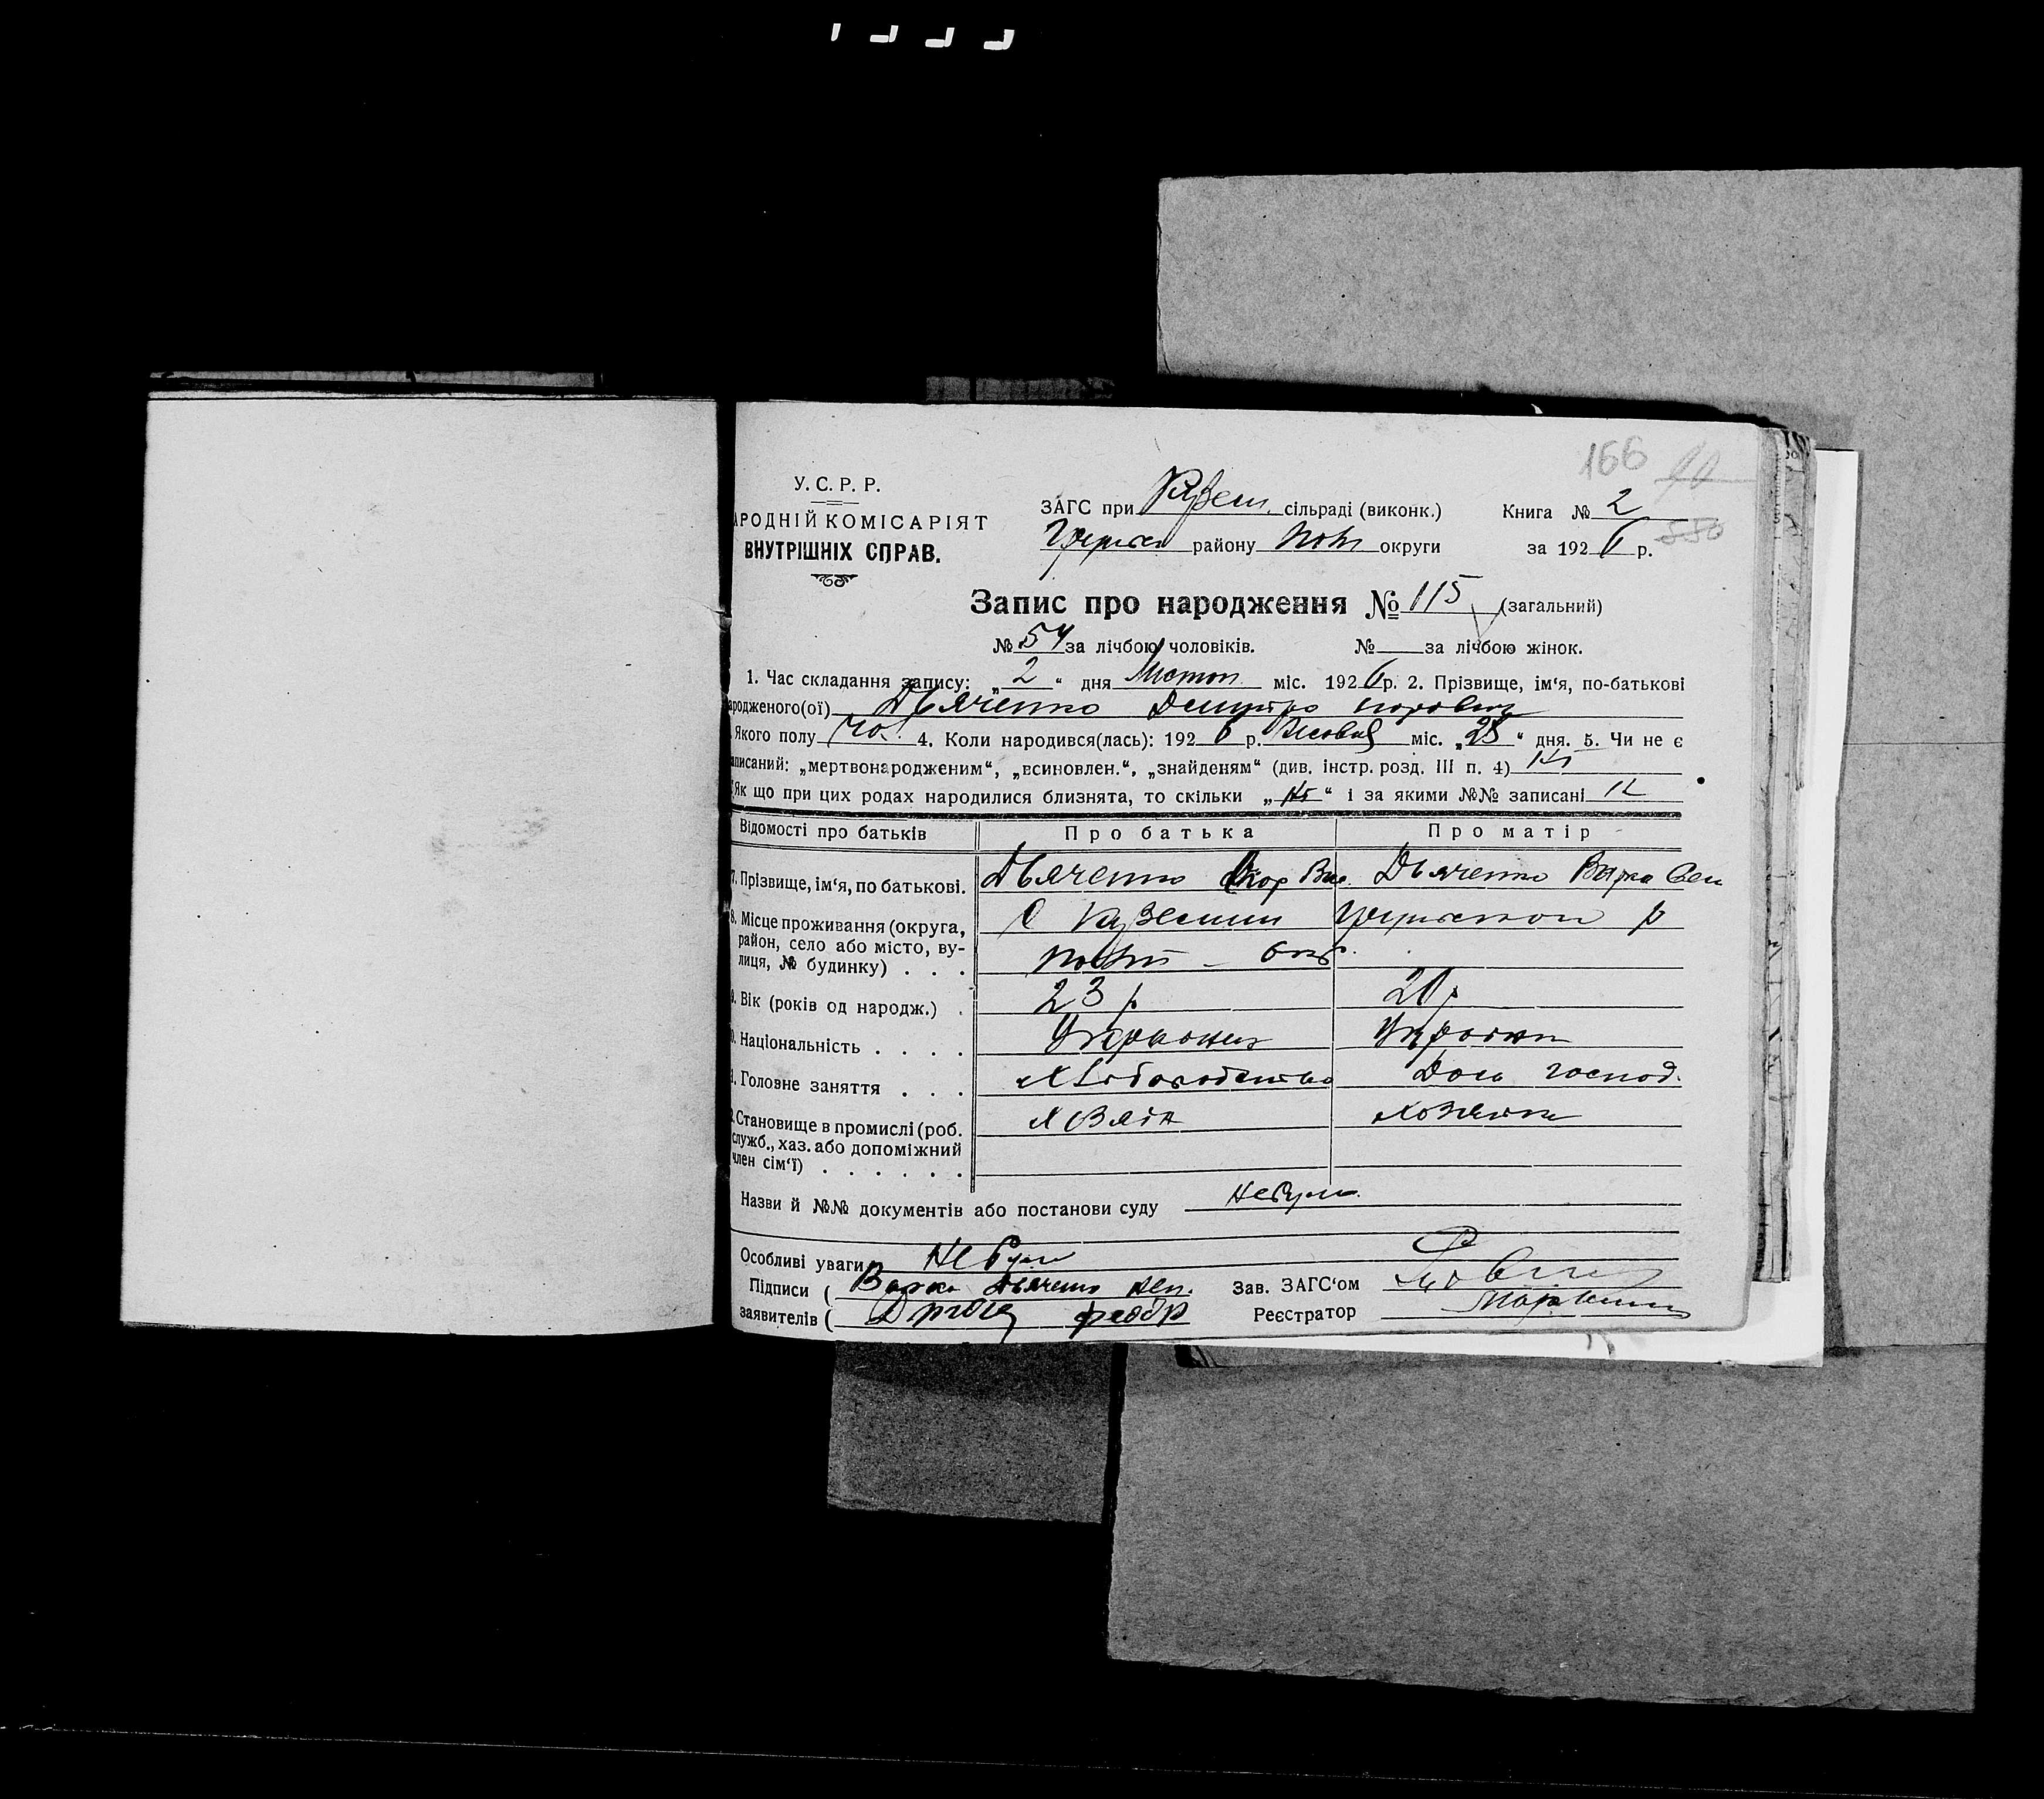 166
У. С. Р. Р.
АРОДНІЙ КОМІСАРІЯТ
ВНУТРІШНІХ СПРАВ.
ЗАГС при сільраді (виконк.)
району округи
Книга № 2
за 1926 р.
Запис про народження № 115 (загальний)
№ 54 за лічбою чоловіків. № за лічбою жінок.
1. Час складання запису: „2“ дня Листоп. міс. 1926 р. 2. Прізвище, ім‘я, по-батькові
ародженого(ої) Дьяченко Дмитро
Якого полу Чол. 4. Коли народився(лась): 1926 р. міс. „25“ дня. 5. Чи не є
аписаний: „мертвонародженим“, „всиновлен.“, „знайденям“ (див. інстр. розд. III п. 4) Ні
Як що при цих родах народилися близнята, то скільки „Ні“ і за якими №№ записані
Відомості про батьків Про батька Про матір
7. Прізвище, ім‘я, по батькові. Дьяченко Дьяченко Варка
8. Місце проживання (округа,
район, село або місто, ву-
лиця, № будинку) . . .
С Куземин р
окр.
9. Вік (років од народж.) . 23 р 20 р
Національність . . . . Українец Українка
Головне заняття . . . Хліборобство Дом. господ.
Становище в промислі (роб.
служб., хаз. або допоміжний
член сім‘ї) . . . . . .
Хозяїн Хозяйка
Назви й №№ документів або постанови суду Небуло
Особливі уваги Небуло
Підписи ( Варка Дьяченко неп. Зав. ЗАГС‘ом
заявителів ( Реєстратор